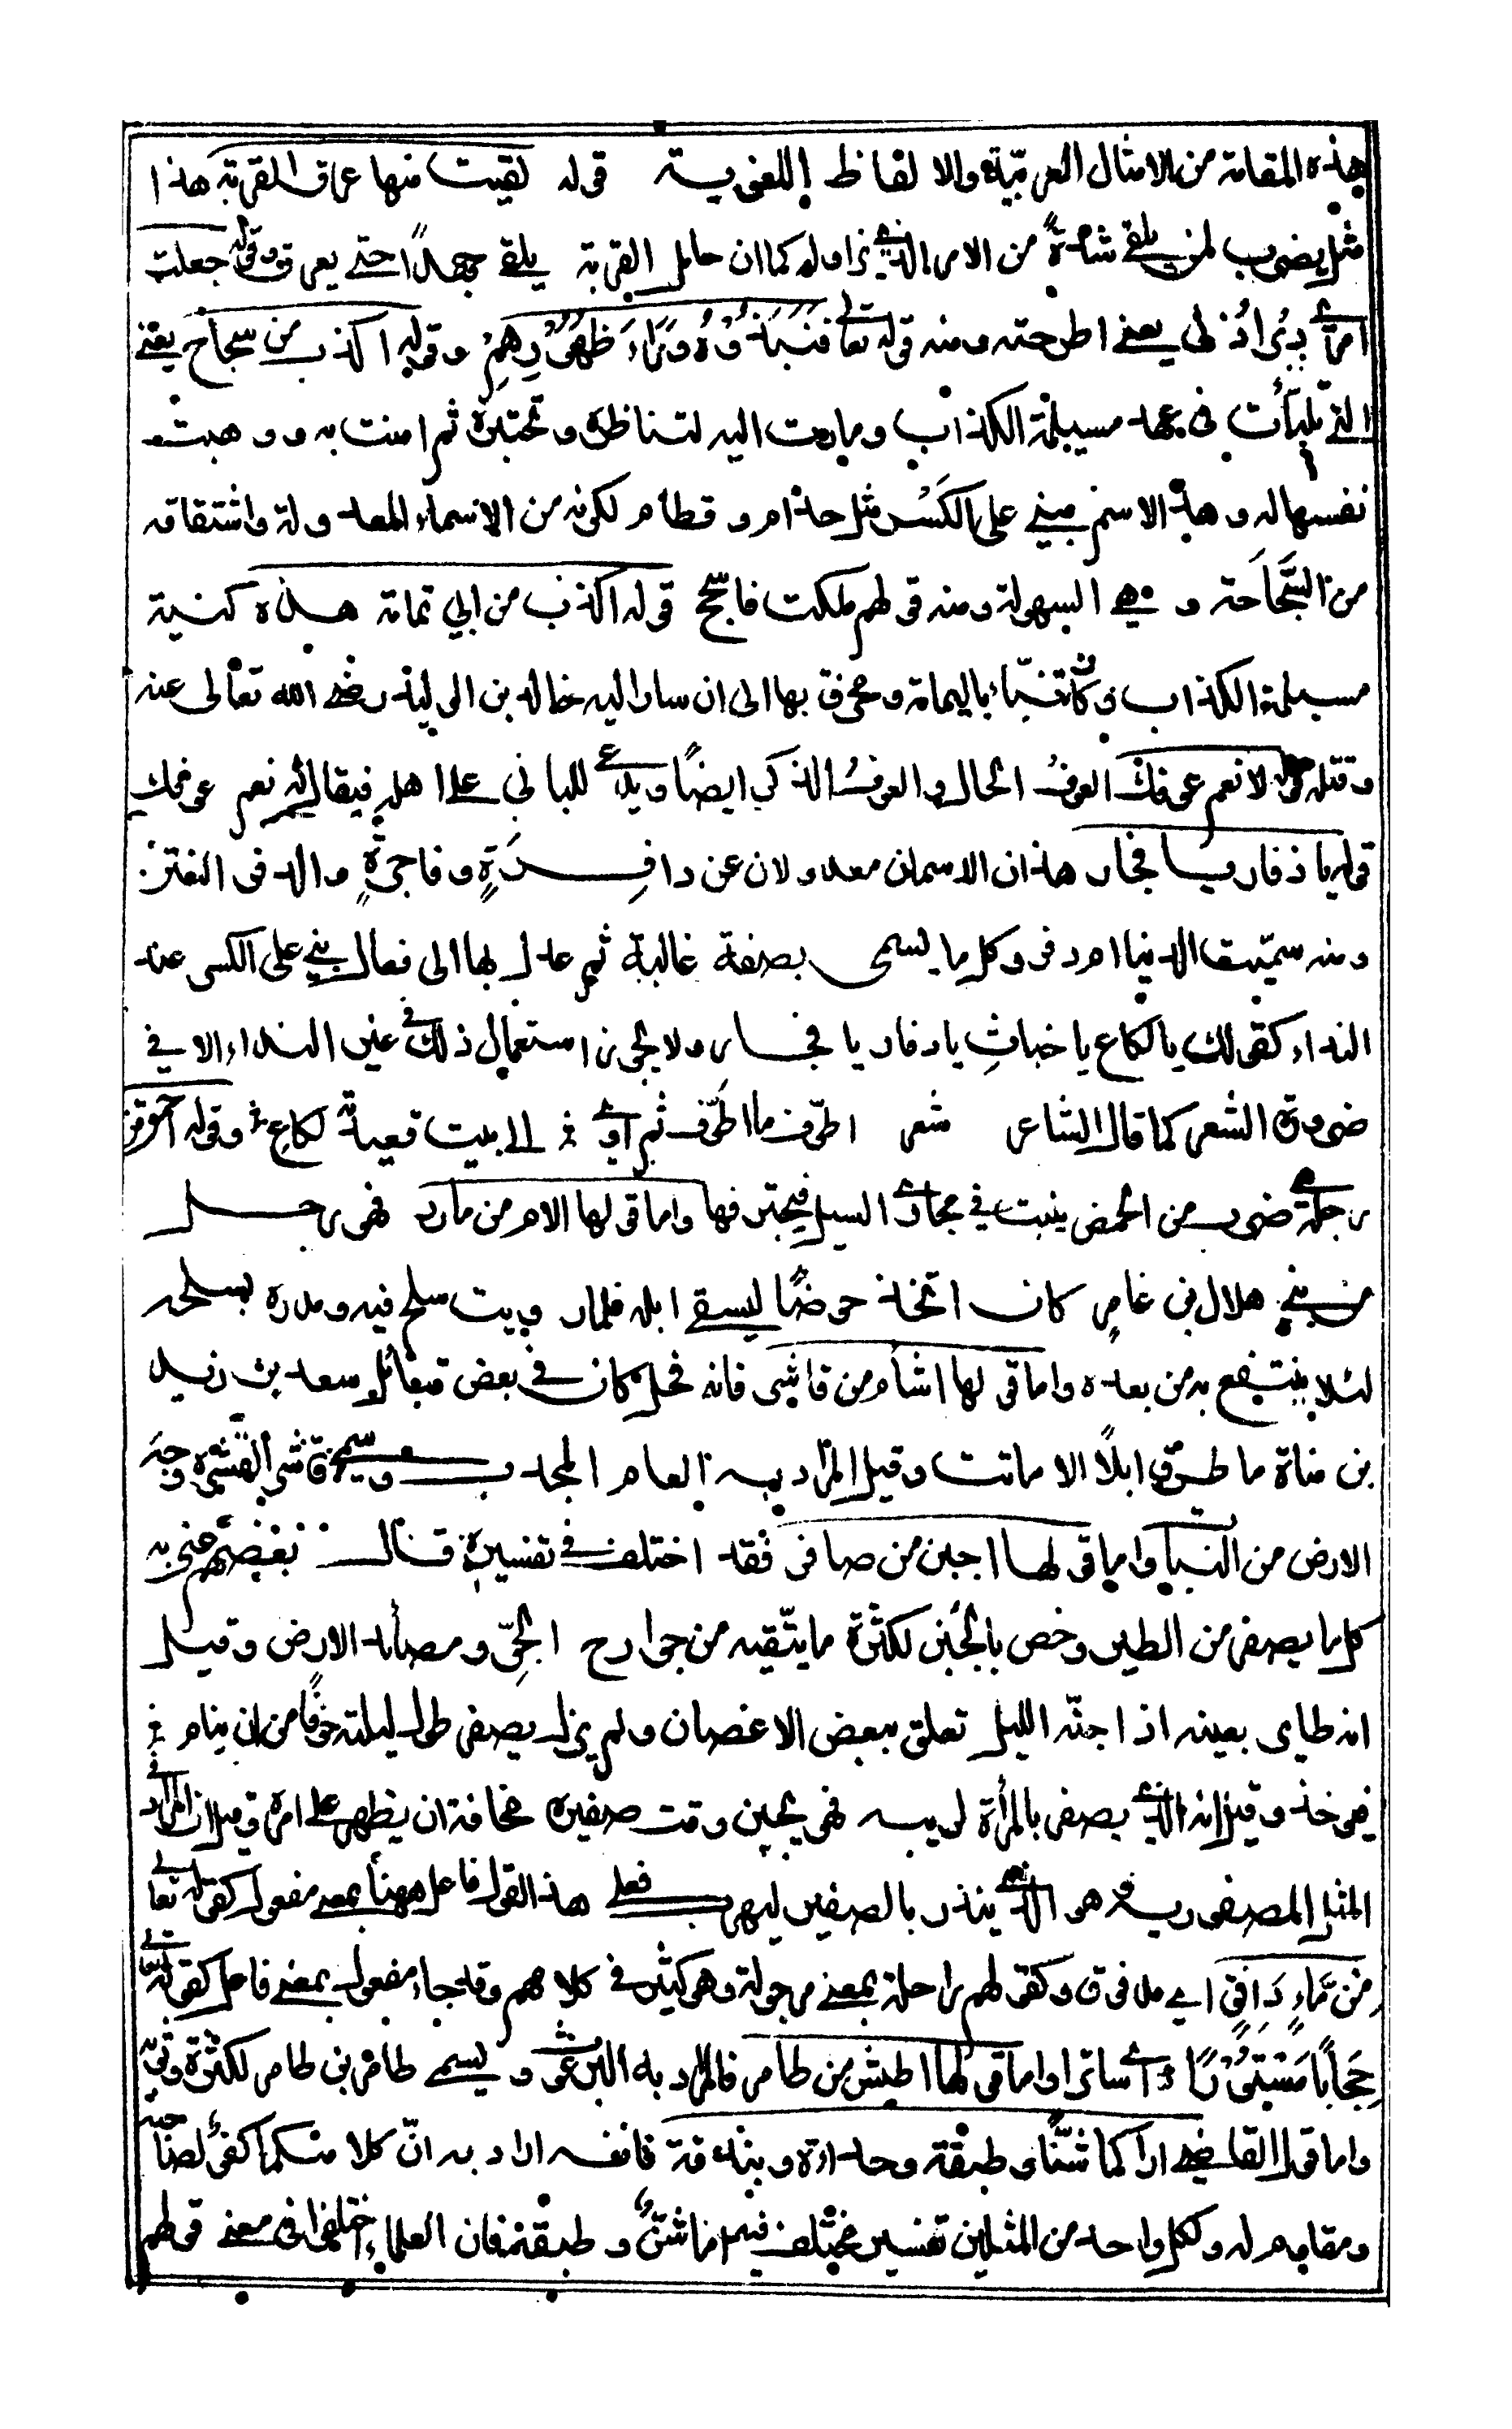 هذه المقامة من الامثال العربية والالفاظ اللغوية قوله لقيت منها عراق القربة هذا
مثل يضرب لمن يلقى شدة من الامر الذي زاوله كما ان حامل القربة يلقى جهدًا حتى يعرق وقوله جعلت
امري دبر اذني يعنى اطرحته ومنه قوله تعالى فنبذوه وراء ظهورهم وقوله اكذب من سجاح يعنى
التي تنبأت في عهد مسيلمة الكذاب وصارت اليه لتناظره وتختبره ثم امنت به ووهبت
نفسها له وهذا الاسم مبني على الكسر مثل حذام وقطام لكونه من الاسماء المعدولة واشتقاقه
من السجاحة وهي السهولة ومنه قولهم ملكت فاسجح قوله اكذب من ابي ثمامة هذه كنية
مسيلمة الكذاب وكان تنبأ باليمامة ومخرق بها الى ان سار اليه خالد بن الوليد رضى الله تعالى عنه
وقتله قوله لا نعم عوفك العوف الحال والعوف الذكر ايضًا ويدعى للباني على اهله فيقال له نعم عوفك
قوله يا ذفار ويا فجار هذان الاسمان معدولان عن دافرة وفاجرة والدفر النتن
ومنه سميت الدنيا ام دفر وكل ما يسمى بصفة غالبة ثم عدل بها الى فعال بني على الكسر عند
النداء كقولك يا لكاع يا خباث يا دفار يا فجار ولا يجوز استعمال ذلك في غير النداء الا في
ضرورة الشعر كما قال الشاعر شعر اطوف ما اطوف ثم آوي الى بيت قعيدته لكاع وقوله احمق من
رجلة ضرب من الحمض ينبت في مجاري السيل فيجترفها واما قولها الام من مادر فهو رجل
من بني هلال بن عامر كان اتخذ حوضًا ليسقي ابله فلما رويت سلح فيه ومدره بسلحه
لئلا ينتفع به من بعده واما قولها اشأم من قاشر فانه فحل كان في بعض قبائل سعد بن زيد
بن مناة ما طرق ابلًا الا ماتت وقيل المراد به العام المجدب وسمي قاشر القشره وجه
الارض من النبات واما قولها اجبن من صافر فقد اختلف في تفسيره فقال بعضهم عنى به
كل ما يصفر من الطير وخص بالجبن لكثرة ما يتقيه من جوارح الجو ومصائد الارض وقيل
انه طاير بعينه اذا جنه الليل تعلق ببعض الاغصان ولم يزل يصفر طول ليلته خوفًا من ان ينام
فيوخذ وقيل انه الذي يصفر بالمرأة لريبة فهو يجبن وقت صفيره مخافة ان يظهر على امره وقيل ان المراد في
المثل المصفور به وهو الذي ينذر بالصفير ليهرب فعلى هذا القول فاعل ههنا بمعنى مفعول كقوله تعالى
من ماءٍ دافقٍ اي مدفوق وكقولهم راحلة بمعنى مرحولة وهو كثير في كلامهم وقد جاء مفعول بمعنى فاعل كقوله تعالى
حجابًا مستورًا اي ساترا واما قولها اطيش من طامر فالمراد به البرغوث ويسمى طامر بن طامر لكثرة وثبه
واما قول القاضي اراكما شنا وطبقة وحدأة وبندقة فانه اراد به ان كلا منكما كفو لصاحبه
ومقاوم له ولكل واحد من المثلين تفسير مختلف فيه اما شن وطبقة فان العلماء اختلفوا في معنى قولهم